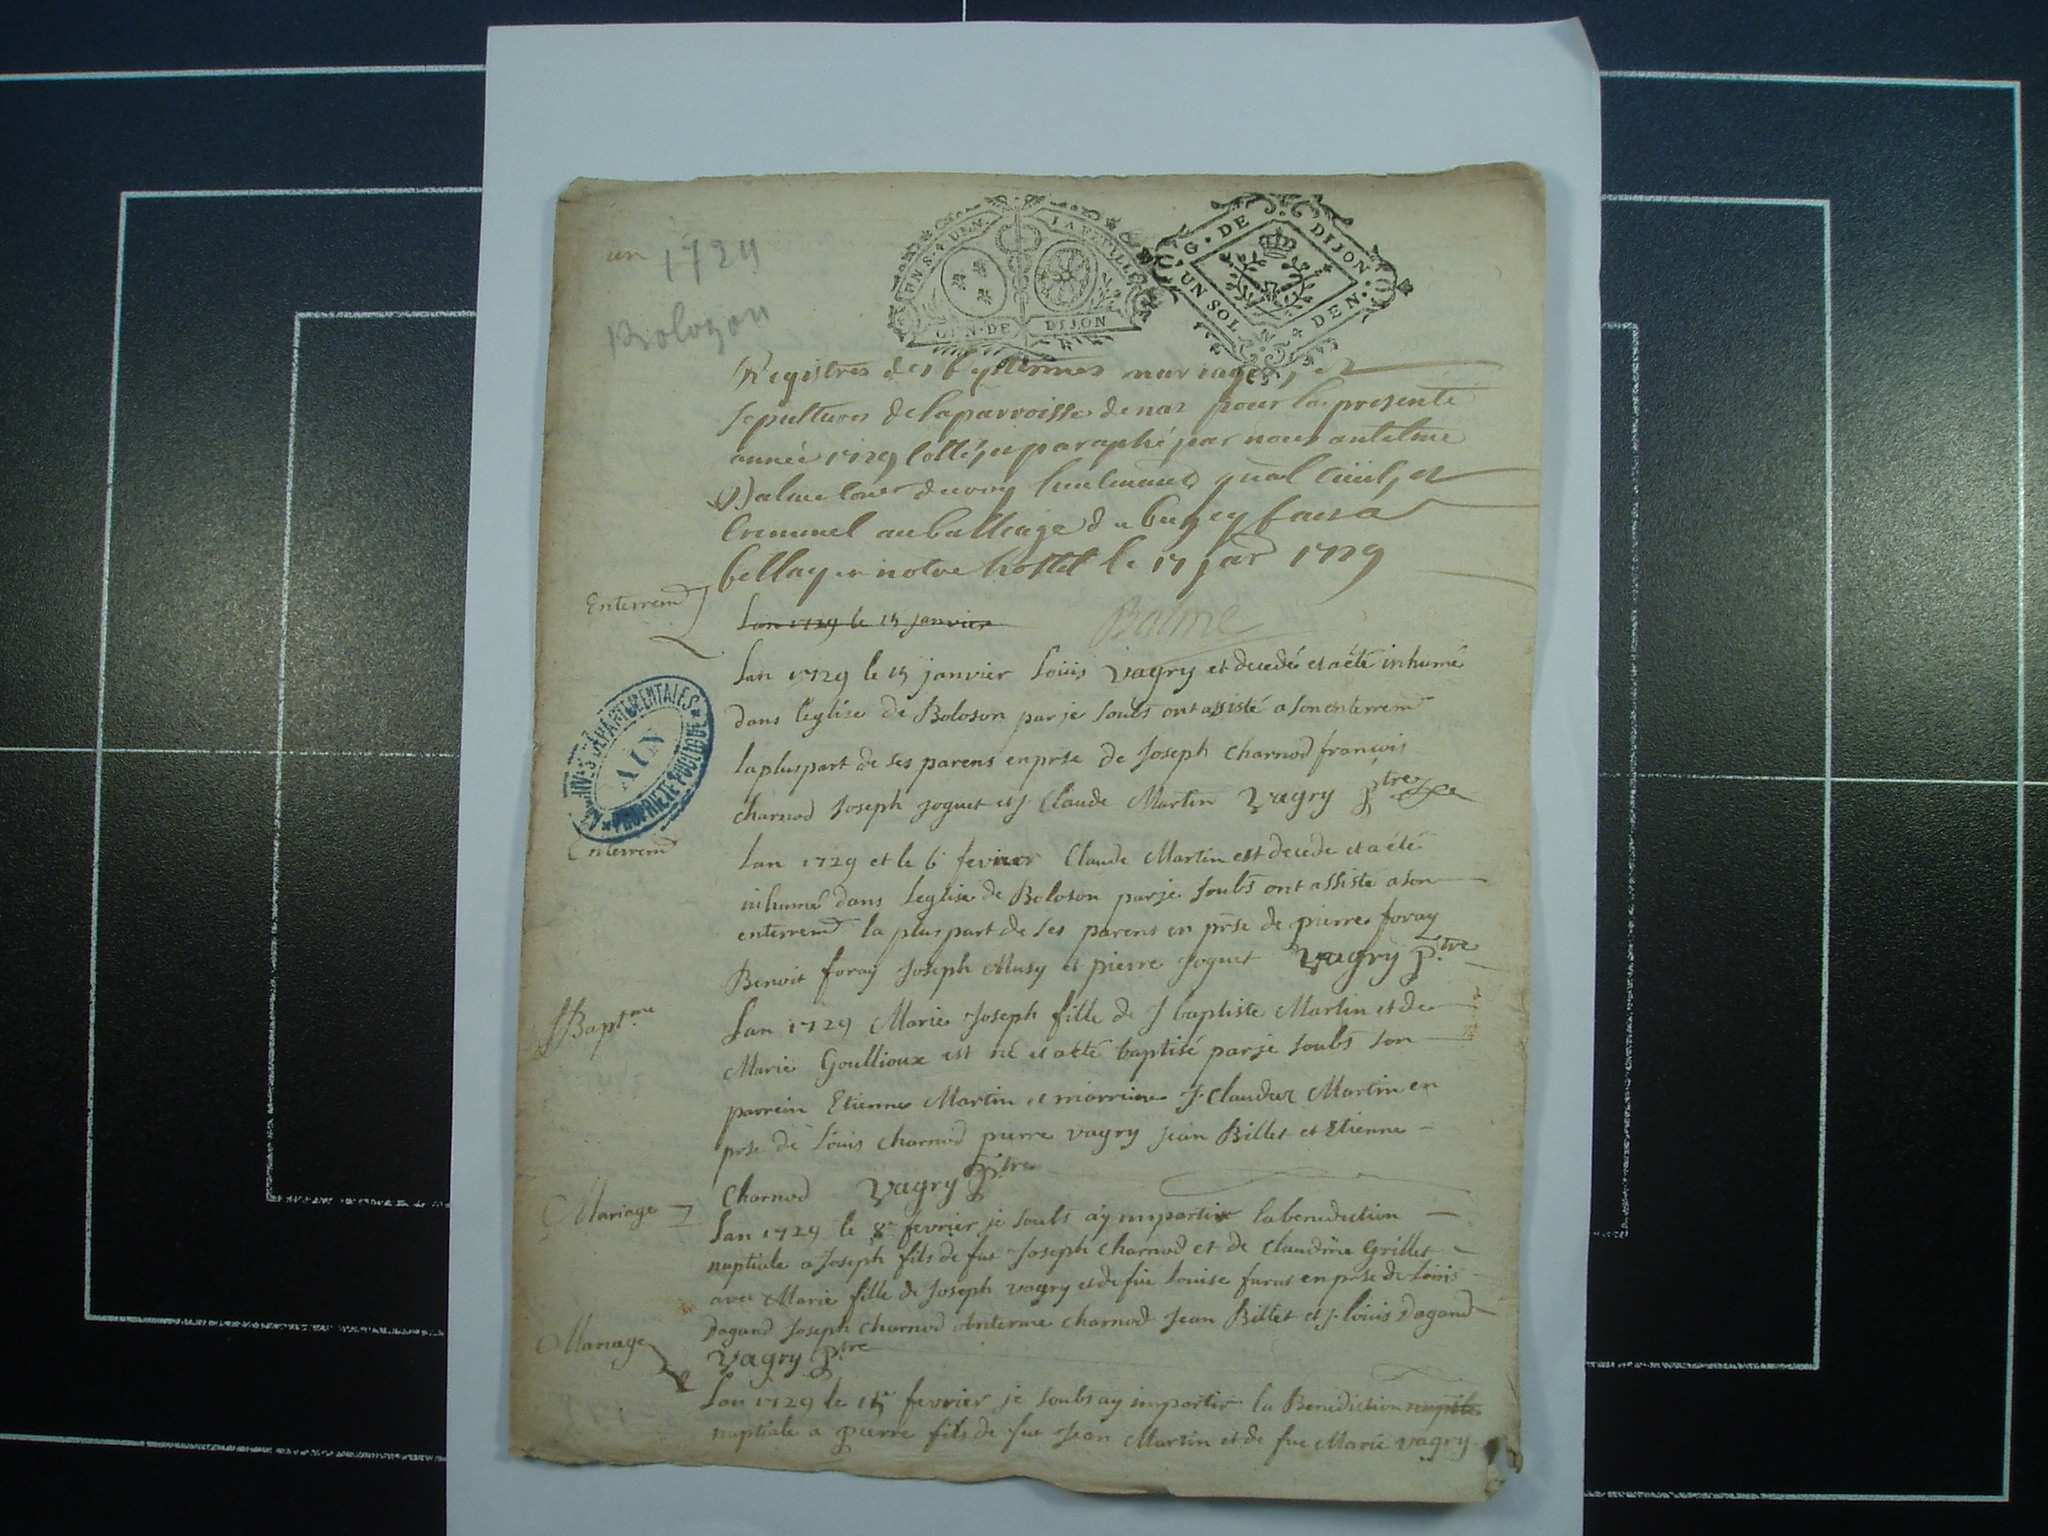 un 1729
Bolozon
UN S. 4 DEN. LA FEUILLE
GEN. DE DIJON
G. DE DIJON
UN SOL 4 DEN.
Registres des baptemes mariages, et
sepultures de la parroisse de naz pour la presente
année 1729 cotté, et paraphé par nous antelme
Balme lieutenant gnal civil, et
criminel au balliage du bugey fait a
bellay en notre hostel le 17 janr 1729
Balme
Enterremt
Lan 1729 le 15 janvier
Lan 1729 le 15 janvier Loüis Vagry et decedé et a été inhumé
dans l'eglise de Boloson par je soubs ont assisté a son enterremt
la pluspart de ses parens en prse de Joseph Charnod françois
charnod Joseph Joguet et J Claude Martin Vagry ptre
ARCHIVES DÉPARTEMENTALES
AIN
PROPRIÉTÉ PUBLIQUE
Enterremt
Lan 1729 et le 6 fevrier Claude Martin est decede et a été
inhumé dans leglise de Boloson par je soubs ont assisté a son
enterremt la pluspart de ses parens en prse de pierre foray
Benoit foray Joseph Musy et pierre Joguet Vagry ptre
Baptme
Lan 1729 Marie Joseph fille de J baptiste Martin et de
Marie Goullioux est né et a été baptisé par je soubs son
parrein Etienne Martin et marreine J. Claudaz Martin en
prse de Loüis Charnod pierre vagry Jean Billet et Etienne
Charnod Vagry ptre
Mariage
Lan 1729 le 8e fevrier je soubs ay impartir la benediction
nuptiale a Joseph fils de fut Joseph Charnod et de Claudine Grillet
avec Marie fille de Joseph vagry et de fue Louise furet en prse de Loüis
Dagand Joseph Charnod Anterme charnod Jean Billet et J. Loüis Dagand
Vagry ptre
Mariage
Lan 1729 le 15 fevrier je soubs ay impartir la Benediction
nuptiale a pierre fils de fut Jean Martin et de fue Marie vagry